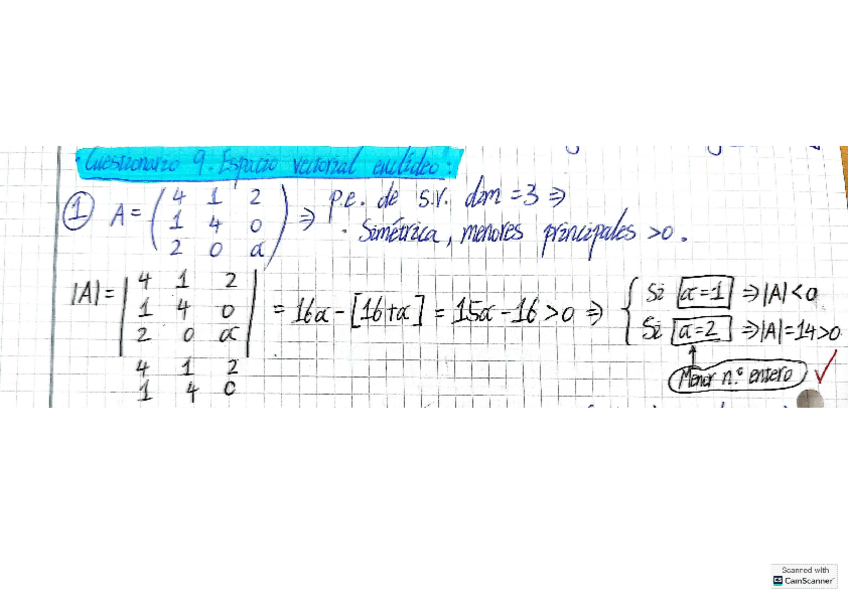 · Cuestionario 9. Espacio vectorial euclídeo:
① A = ( 4 1 2 / 1 4 0 / 2 0 α ) ⇒ p.e. de s.v. dim = 3 ⇒
· Simétrica, menores principales > 0.
|A| = | 4 1 2 / 1 4 0 / 2 0 α | = 16α - [16 + α] = 15α - 16 > 0 ⇒ { Si α = 1 ⇒ |A| < 0
Si α = 2 ⇒ |A| = 14 > 0
4 1 2
1 4 0
Menor n.º entero ✓
Scanned with
CS CamScanner